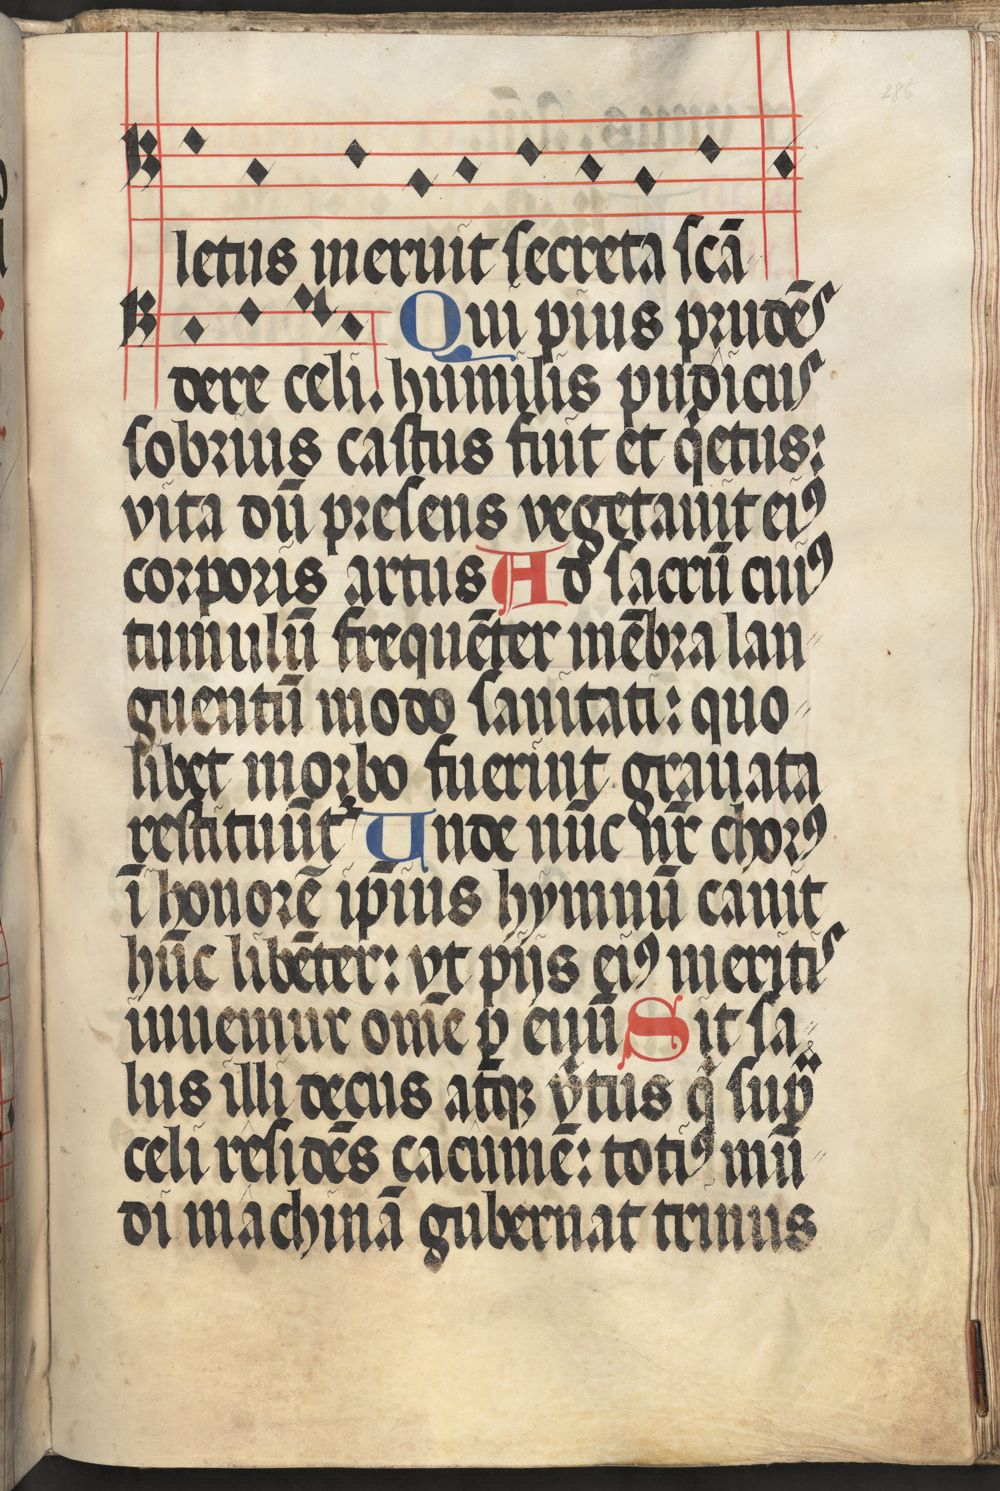 285
letus meruit secreta scā
Qui pius prudēs
dere celi. humilis pudicus
sobrius castus fuit et q̇etus:
vita dū presens vegetauit eiꝰ
corporis artus Ad sacrū cuiꝰ
tumulū frequēter mēbra lan
guentiū modo sanitati: quo
libet morbo fuerint grauata
restituūt͛ Unde nūc nr̄ chorꝰ
ī honorē ip̄ius hymnū canit
hūc libēter: vt pijs eiꝰ meritis
iuuemur om̄e ꝑ euū Sit sa
lus illi decus atq̄ꝫ v̇tus q̇ suꝑ
celi residēs cacumē: totiꝰ mū
di machinā gubernat trinus